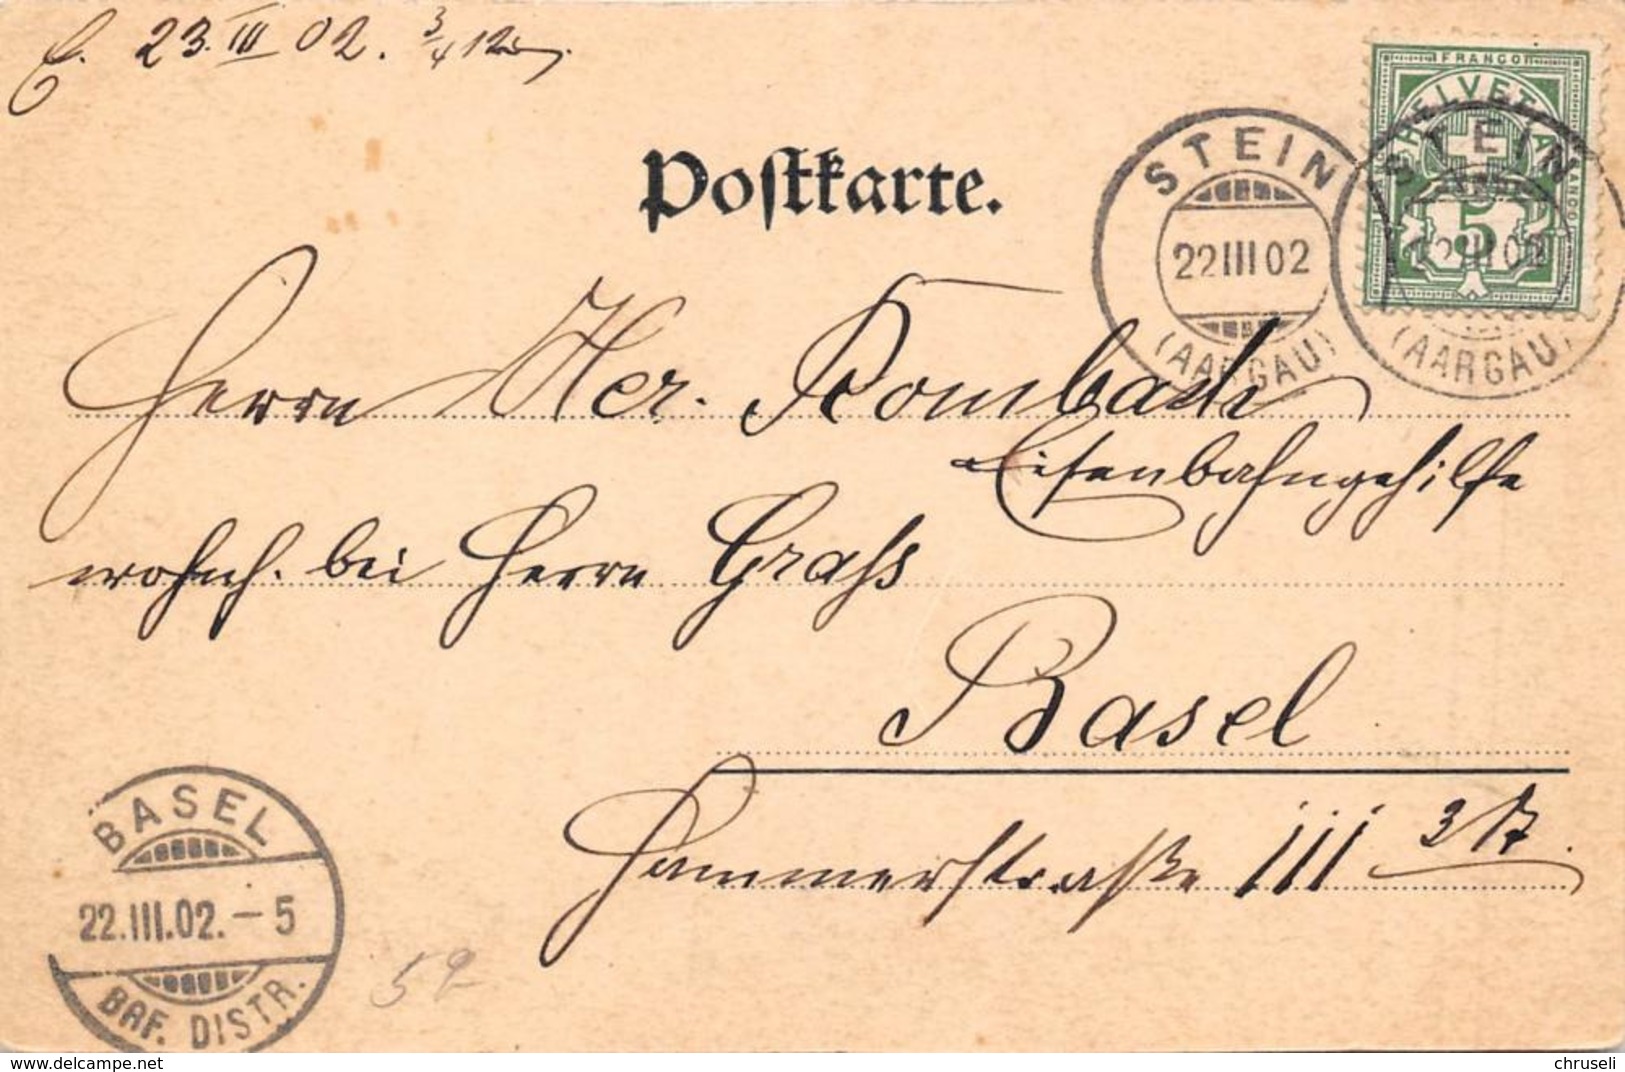 E. 23. III 02. 3/4 12
Postkarte.
FRANCO
HELVETIA
FRANCO
5
STEIN
22 III 02
(AARGAU)
STEIN
22 III 02
(AARGAU)
Herrn Her. Rombach
Eisenbahngehilfe
wohnh. bei Herrn Grass
Basel
Hammerstraße 111 3 St.
BASEL
22.III.02.–5
BRF. DISTR.
52
chruseli